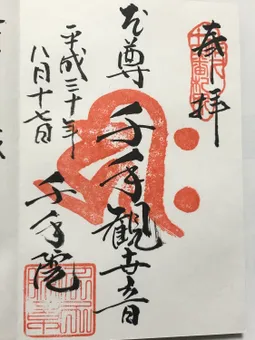 奉拝
本尊
千手観世音
千手院
平成三十年
八月十七日